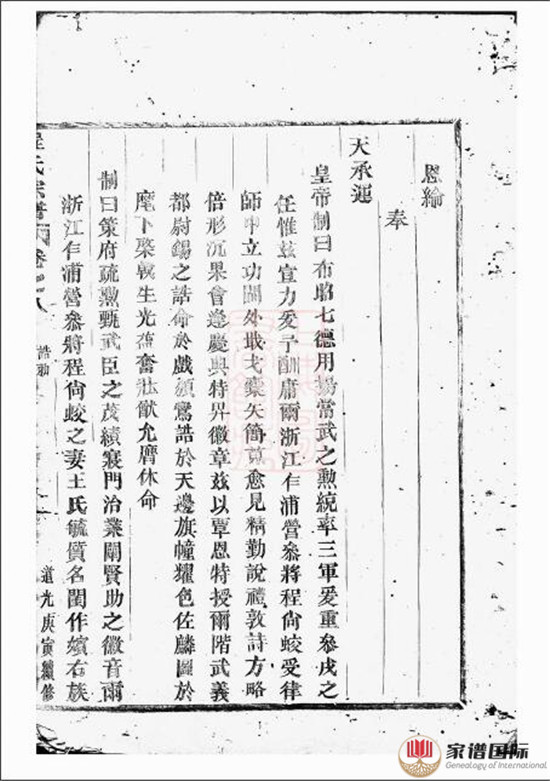 恩綸
奉
天承運
皇帝制曰布昭七德用揚常武之勲統率三軍爰重叅戎之
任惟兹宣力爰予酬庸爾浙江乍浦營叅將程尚蛟受律
師中立功閫外戢戈櫜矢簡蒐愈見精勤說禮敦詩方略
倍形沉果會逢慶典特昇徽章兹以覃恩特授爾階武義
都尉錫之誥命於戲頒鸞誥於天邊旗幢耀色佐麟圖於
麾下棨戟生光益奮壯猷允膺休命
制曰策府疏勲甄武臣之茂績寢門治業闡賢助之徽音爾
浙江乍浦營叅將程尚蛟之妻王氏毓質名閨作嬪右族
程氏宗譜
卷之八
誥勅
道光庚寅續修
家谱国际
Genealogy of International